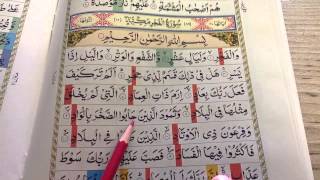 هُمْ أَصْحَٰبُ ٱلْمَشْـَٔمَةِ عَلَيْهِمْ نَارٌ مُّؤْصَدَةٌ
سُورَةُ الْفَجْرِ مَكِّيَّةٌ
بِسْمِ اللهِ الرَّحْمٰنِ الرَّحِيْمِ
وَالْفَجْرِ وَلَيَالٍ عَشْرٍ وَالشَّفْعِ وَالْوَتْرِ وَالَّيْلِ إِذَا
يَسْرِ هَلْ فِي ذٰلِكَ قَسَمٌ لِّذِي حِجْرٍ أَلَمْ تَرَ كَيْفَ
فَعَلَ رَبُّكَ بِعَادٍ إِرَمَ ذَاتِ الْعِمَادِ الَّتِي لَمْ يُخْلَقْ
مِثْلُهَا فِي الْبِلَادِ وَثَمُودَ الَّذِينَ جَابُوا الصَّخْرَ بِالْوَادِ
وَفِرْعَوْنَ ذِي الْأَوْتَادِ الَّذِينَ طَغَوْا فِي الْبِلَادِ
فَأَكْثَرُوا فِيهَا الْفَسَادَ فَصَبَّ عَلَيْهِمْ رَبُّكَ سَوْطَ